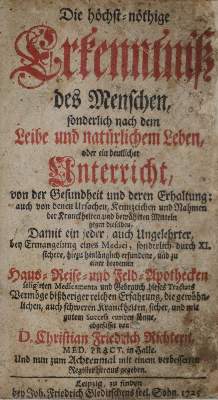 Die höchst-nöthige
Erkenntniß
des Menschen,
sonderlich nach dem
Leibe und natürlichem Leben,
oder ein deutlicher
Unterricht,
von der Gesundheit und deren Erhaltung:
auch von denen Ursachen, Kennzeichen und Nahmen
der Kranckheiten und bewährten Mitteln
gegen dieselben,
Damit ein jeder, auch Ungelehrter,
bey Ermangelung eines Medici, sonderlich durch XI.
sichere, hiezu hinlänglich erfundene, und zu
einer bequemen
Haus- Reise- und Feld-Apothecken
selegirten Medicamenta und Gebrauch dieses Tractats
Vermöge bißheriger reichen Erfahrung, die gewöhn-
lichen, auch schweren Kranckheiten, sicher, und mit
gutem Success curiren könne,
abgefasset von
D. Christian Friedrich Richtern,
MED. PRACT. in Halle.
Und nun zum Achtenmal mit einem verbesserten
Register heraus gegeben.
Leipzig, zu finden
bey Joh. Friedrich Gleditschens sel. Sohn.